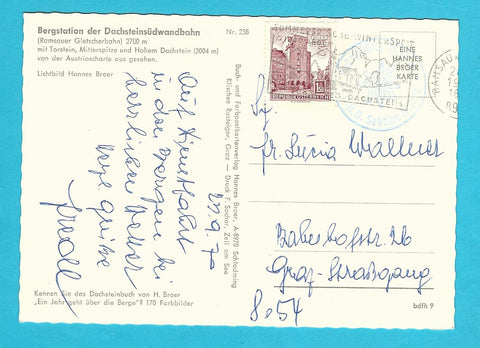 Bergstation der Dachsteinsüdwandbahn
(Ramsauer Gletscherbahn) 2700 m
mit Torstein, Mitterspitze und Hohem Dachstein (3004 m)
von der Austriascharte aus gesehen.
Lichtbild Hannes Broer
Nr. 238
27.9.70
Auf Himmelfahrt
in den Bergen bei
herrlichem Wetter
Grüße
Kennen Sie das Dachsteinbuch von H. Broer
„Ein Jahr geht über die Berge"? 170 Farbbilder
Buch- und Farbpostkartenverlag Hannes Broer, A-8970 Schladming
Klischee Rosteiger, Graz — Druck F. Sochor, Zell am See
REPUBLIK ÖSTERREICH
SOMMER
WINTERSPORT
DACHSTEIN
Sektion
EINE
HANNES
BROER
KARTE
RAMSAU
Fr. Lucia Wallner
Graz-Straßgang
8054
bdfh 9